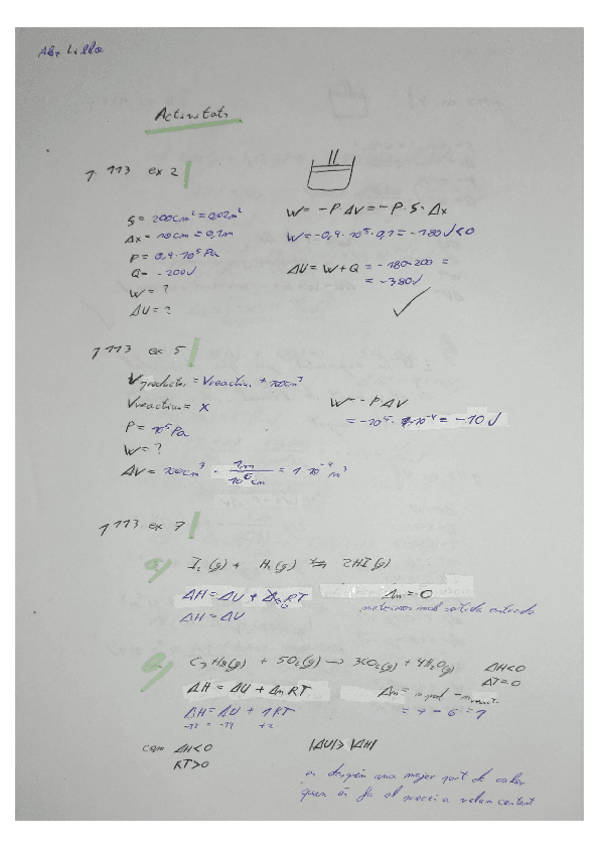 Activitats
p 113 ex 2
S = 200cm² = 0,02m²
Δx = 10cm = 0,1m
P = 0,9·10⁵ Pa
Q = -200J
W = ?
ΔU = ?
W = -P·ΔV = -P·S·Δx
W = -0,9·10⁵·0,1 = -180J < 0
ΔU = W + Q = -180-200 =
= -380J
p 113 ex 5
V productes = V reactius + 100cm³
V reactius = x
P = 10⁵ Pa
W = ?
ΔV = 100cm³ · 1m / 10⁶cm = 1·10⁻⁴ m³
W = -P·ΔV
= -10⁵ · 10⁻⁴ = -10 J
p 113 ex 7
I₂(g) + H₂(g) ⇆ 2HI(g)
ΔH = ΔU + Δn RT
ΔH = ΔU
Δn = 0
C₃H₈(g) + 5O₂(g) → 3CO₂(g) + 4H₂O(g)
ΔH<0
ΔT=0
ΔH = ΔU + Δn RT
ΔH = ΔU + 1RT
Δn = n prod - n react.
= 7 - 6 = 1
com ΔH<0
RT>0
|ΔU| > |ΔH|
es desprèn una major part de calor
quan es fa el procés a volum constant